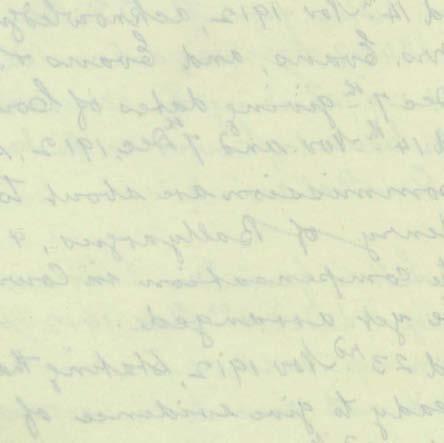 14th Nov 1912, acknowledg
Evans, and Evans &
Dec 7th giving dates of
14th Nov. and 7th Dec. 1912,
Commission are about to
enry of
Compensation in
yet arranged.
23rd Nov 1912, stating
eady to give evidence of